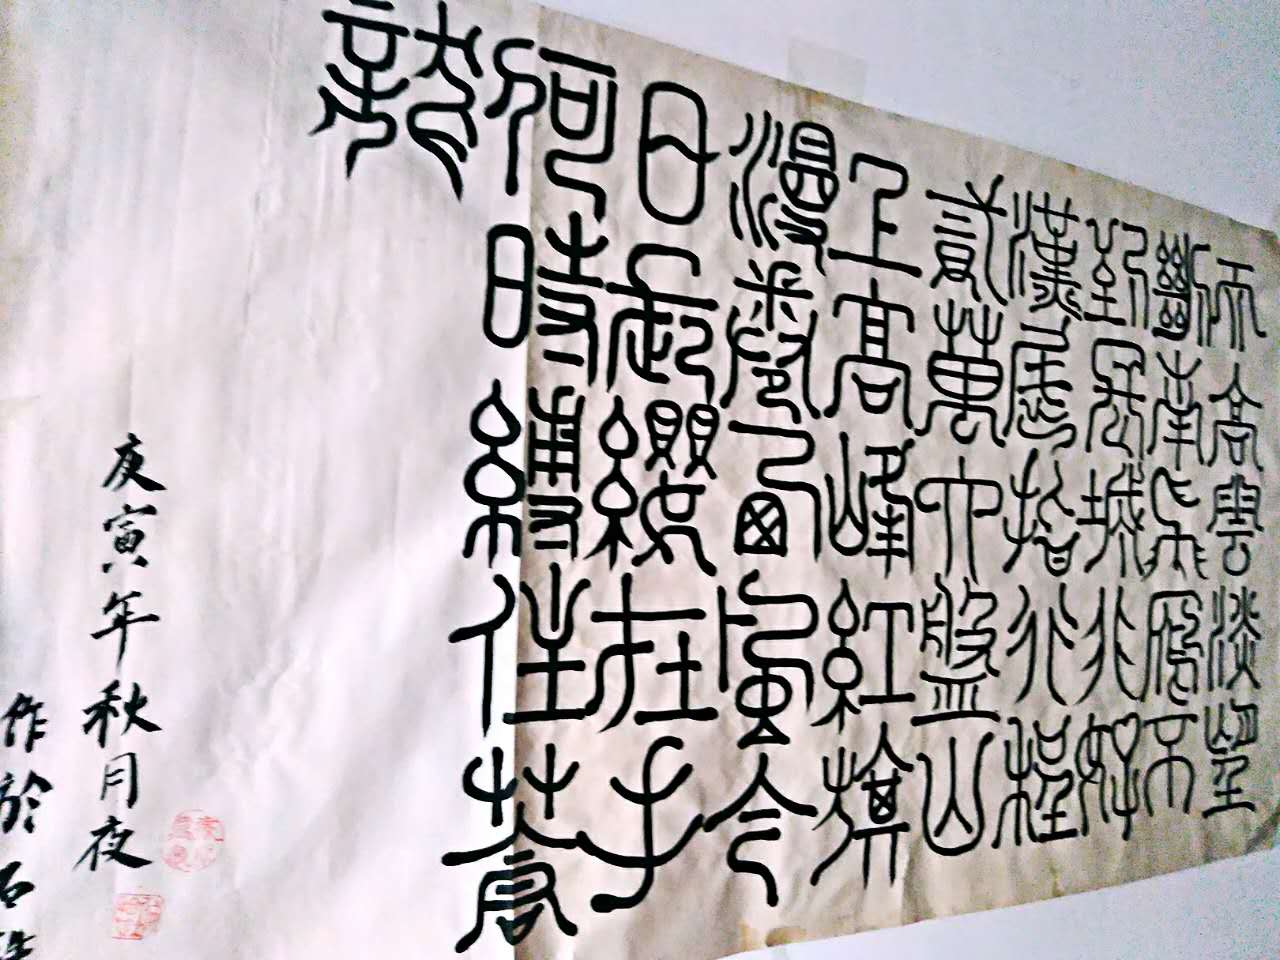 天高雲淡望
斷南飛雁不
到長城非好
漢屈指行程
貳萬六盤山
上高峰紅旗
漫卷西風今
日長纓在手
何時縛住蒼
龍
庚寅年秋月夜
作於石